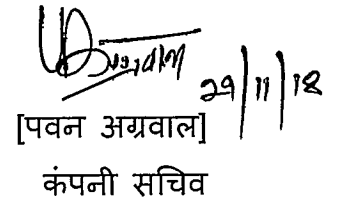 29/11/18
[पवन अग्रवाल]
कंपनी सचिव